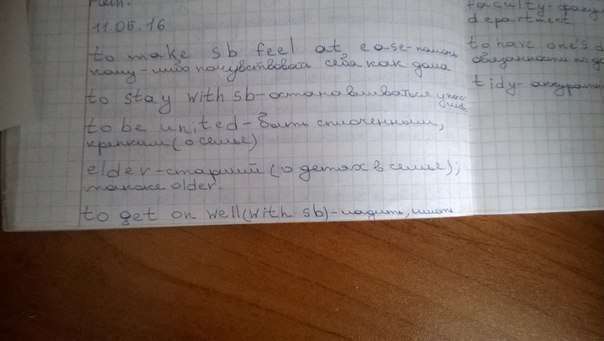 11.05.16
to make sb feel at ease-помочь
кому-либо почувствовать себя как дома
to stay with sb-останавливаться
to be united-быть сплоченными,
крепким(о семье)
elder-старший (о детях в семье);
также older.
to get on well(with sb)-ладить, иметь
faculty-факу
department
to have one's
обязанности по
tidy-аккуратн